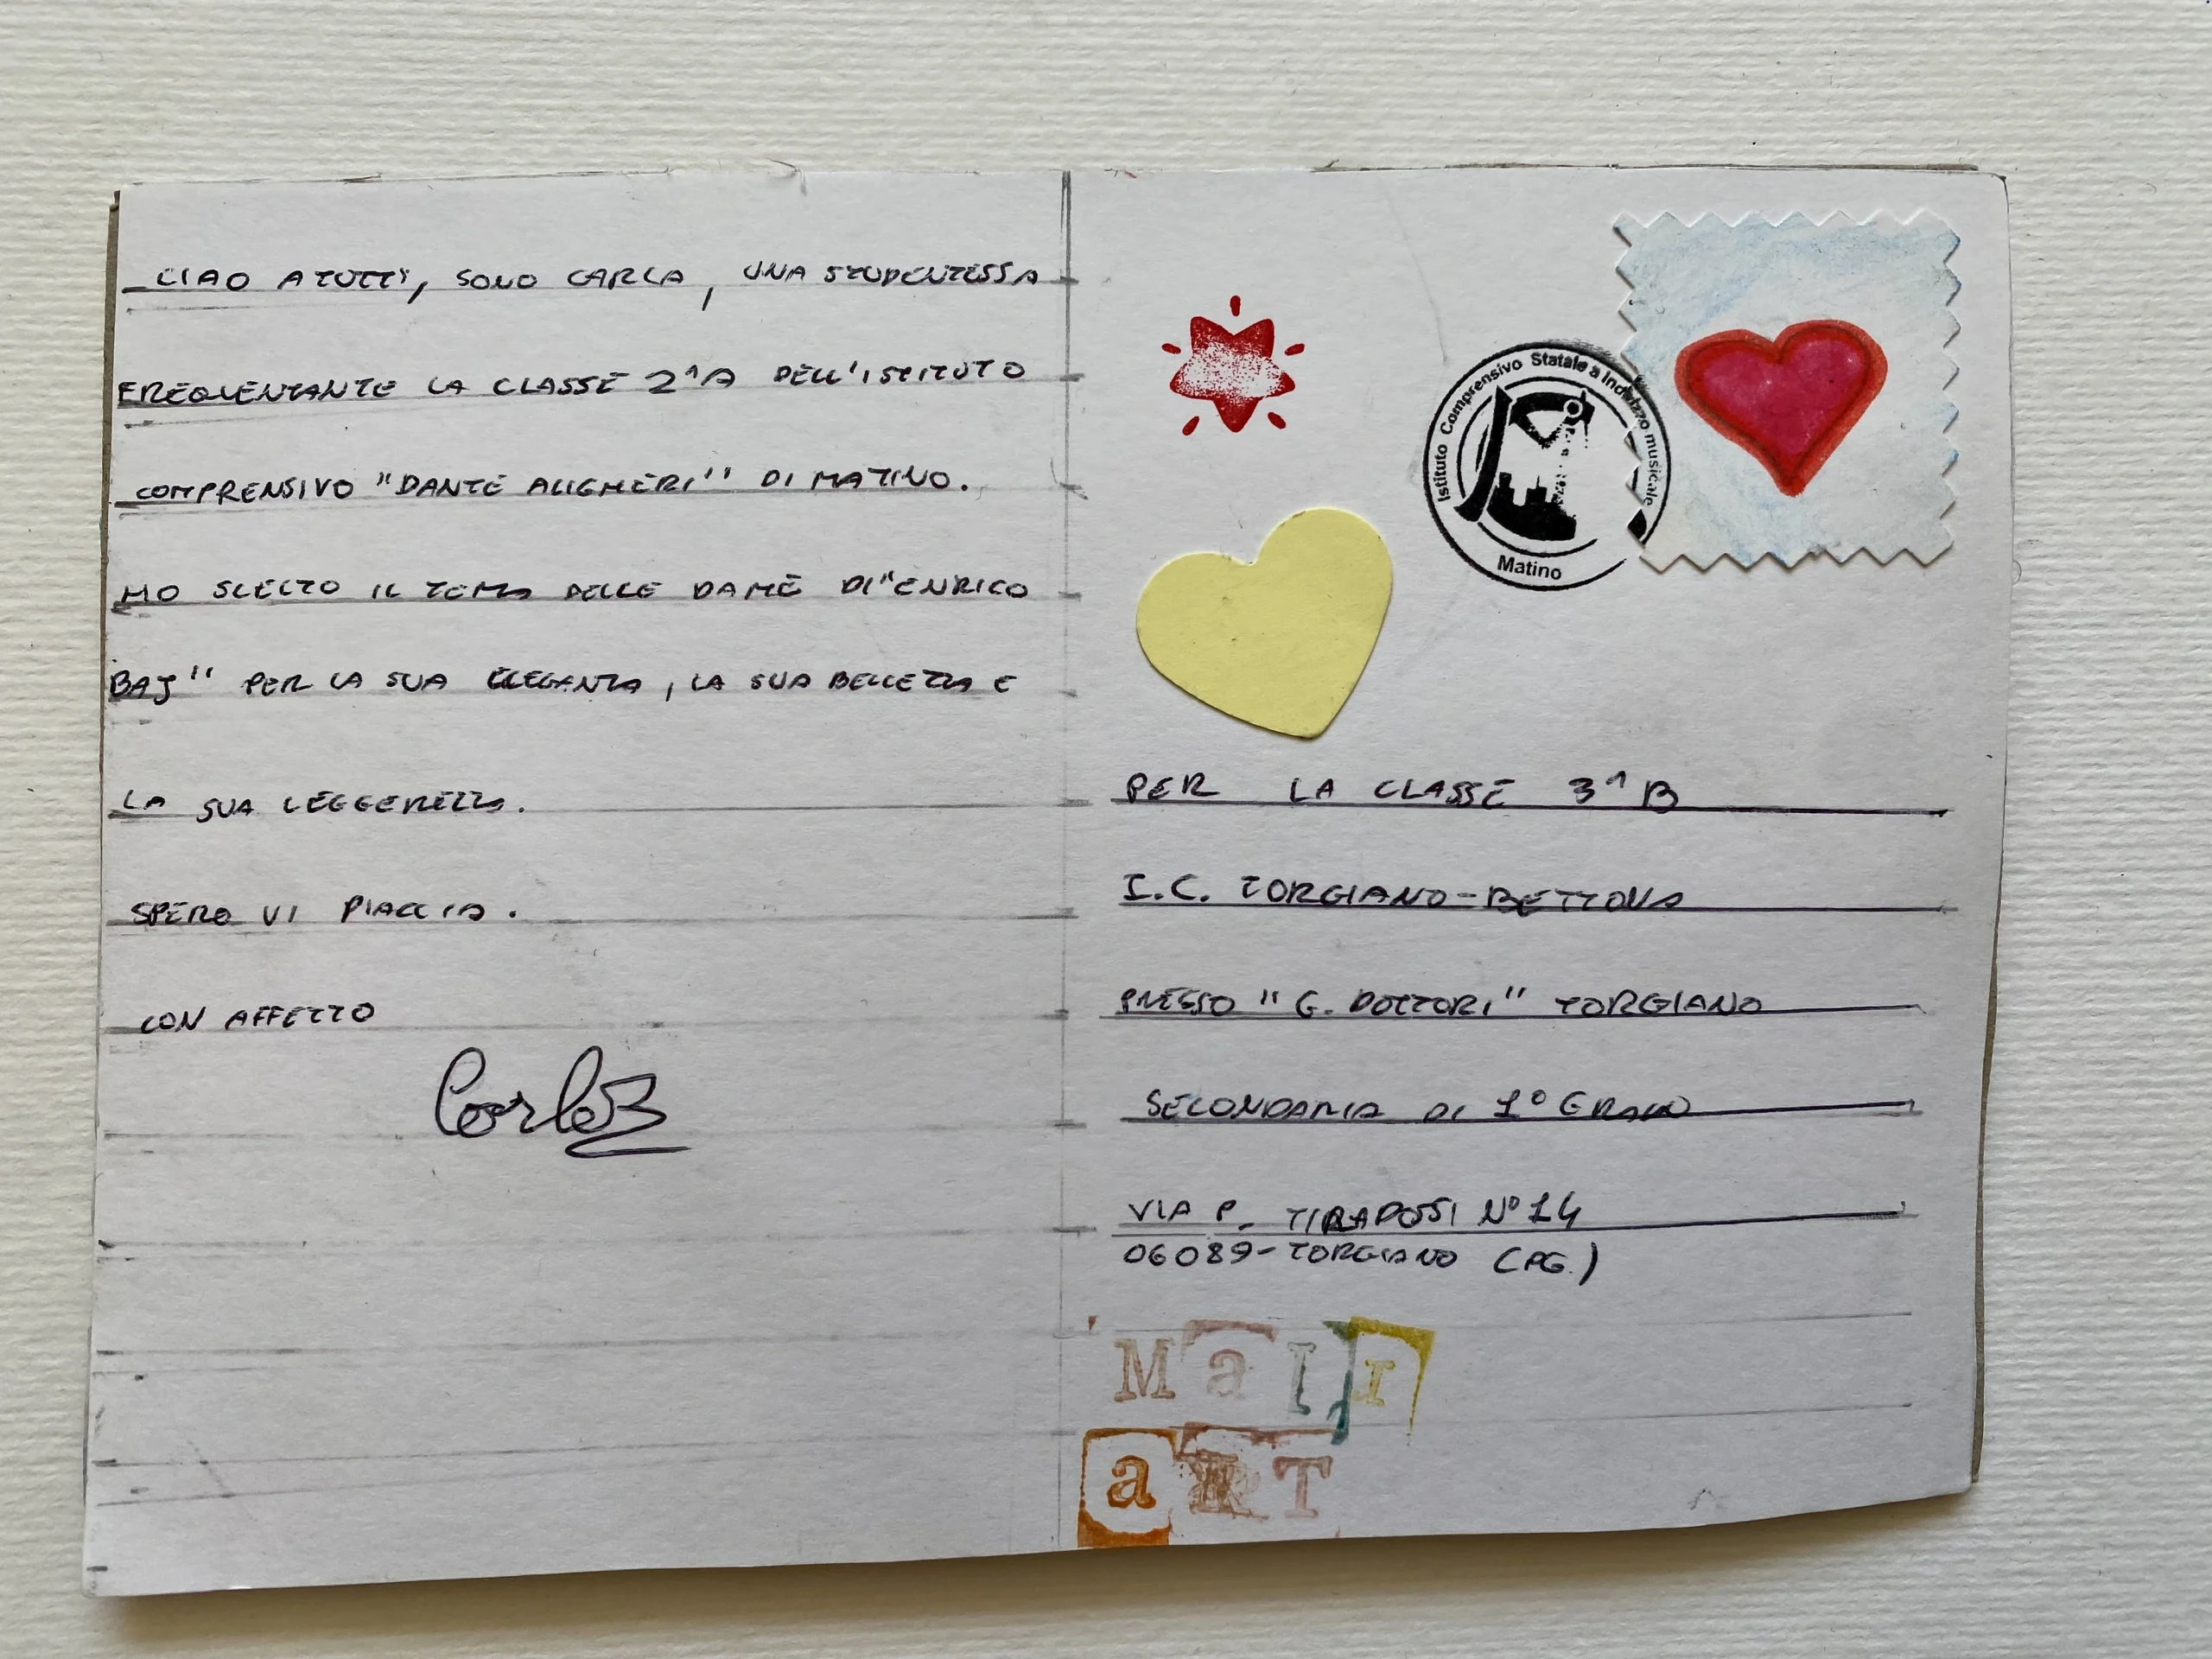 CIAO A TUTTI, SONO CARLA, UNA STUDENTESSA
FREQUENTANTE LA CLASSE 2^A DELL'ISTITUTO
COMPRENSIVO "DANTE ALIGHIERI" DI MATINO.
HO SCELTO IL TEMA DELLE DAME DI "ENRICO
BAJ" PER LA SUA ELEGANZA, LA SUA BELLEZZA E
LA SUA LEGGEREZZA.
SPERO VI PIACCIA.
CON AFFETTO
Carla
Istituto Comprensivo Statale a Indirizzo musicale
Matino
PER LA CLASSE 3^B
I.C. TORGIANO-BETTONA
PRESSO "G. DOTTORI" TORGIANO
SECONDARIA DI 1° GRADO
VIA P. TIRADOSSI N° 14
06089-TORGIANO (PG.)
Mail
aRT